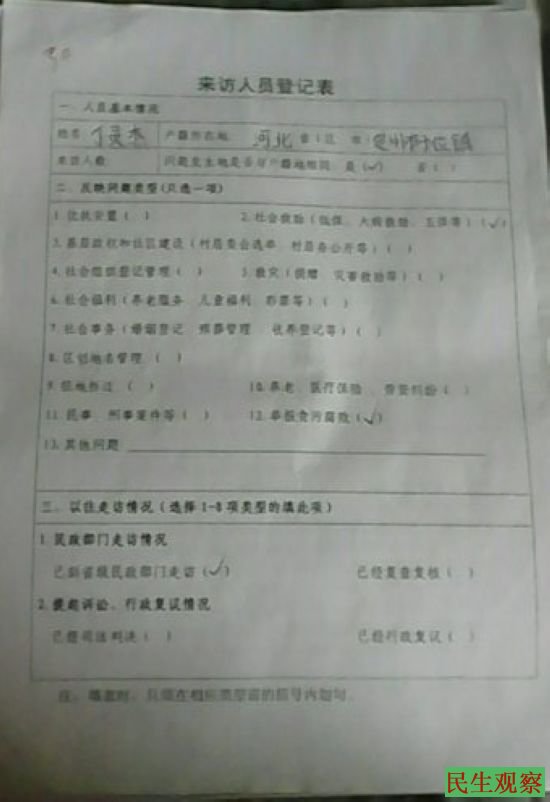 来访人员登记表
一、人员基本情况
姓名 户籍所在地 河北 省(区 市)
来访人数 问题发生地是否与户籍地相同 是(√) 否( )
二、反映问题类型(只选一项)
1.优抚安置( ) 2.社会救助(低保、大病救助、五保等)(√)
3.基层政权和社区建设(村居委会选举、村居务公开等)( )
4.社会组织登记管理( ) 5.救灾(捐赠、灾害救助等)( )
6.社会福利(养老服务、儿童福利、彩票等)( )
7.社会事务(婚姻登记、殡葬管理、收养登记等)( )
8.区划地名管理( )
9.征地拆迁( ) 10.养老、医疗保险、劳资纠纷( )
11.民事、刑事案件等( ) 12.举报贪污腐败(√)
13.其他问题
三、以往走访情况(选择1-8项类型的填此项)
1.民政部门走访情况
已到省级民政部门走访(√) 已经复查复核( )
2.提起诉讼、行政复议情况
已经司法判决( ) 已经行政复议( )
注:填表时,只须在相应类型后的括号内划勾
民生观察